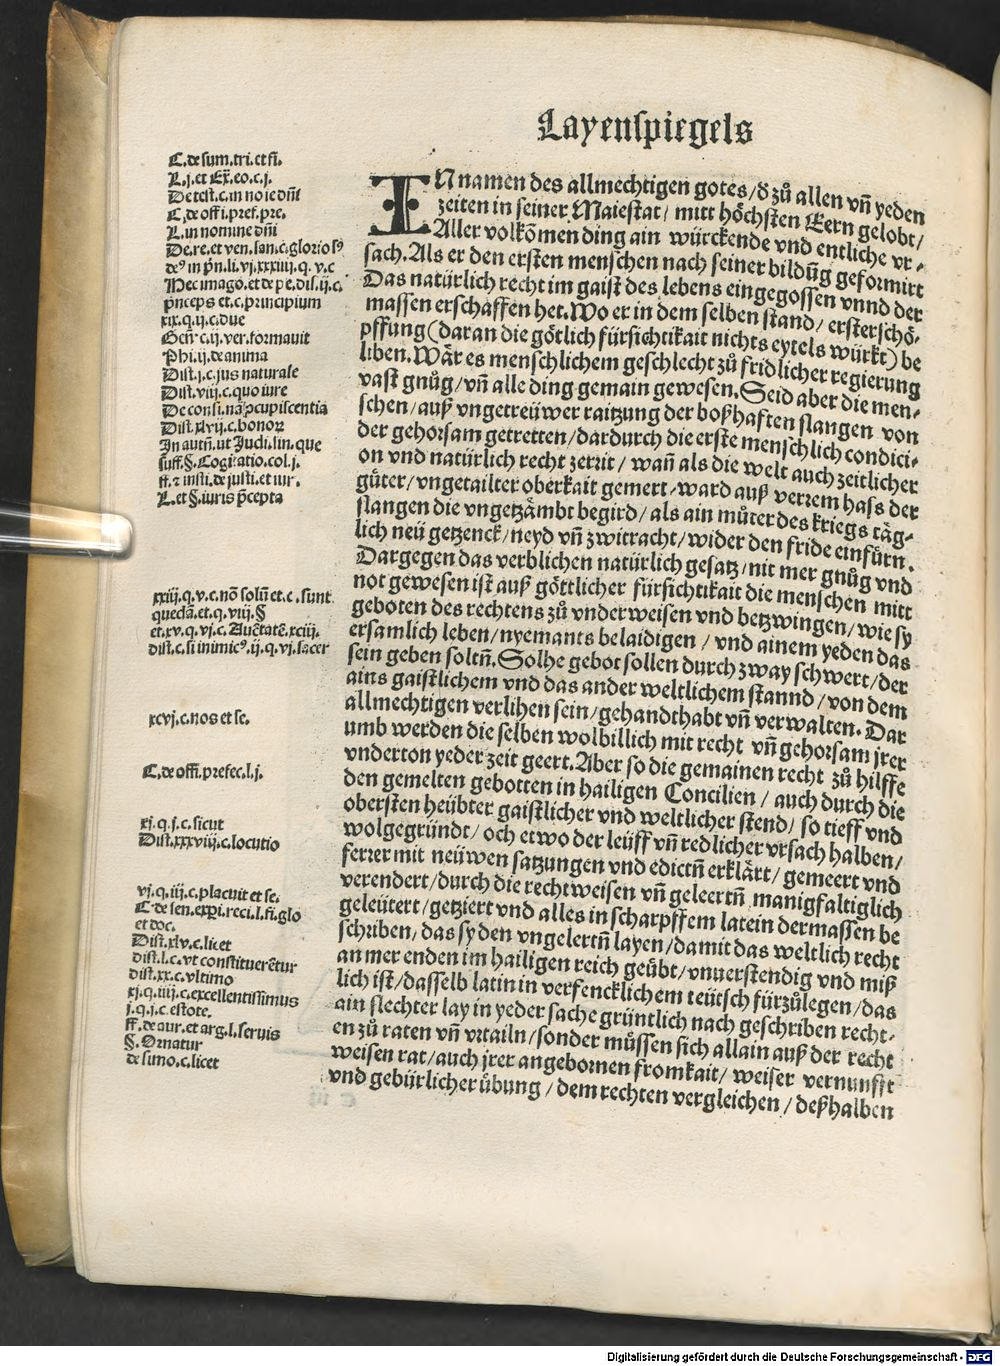 Layenſpiegels
C. de ſum. tri. et fi.
L. j. et Ex̄. eo. c. j.
De teſt. c. in noīe dn̄i
C. de offi. pref. pre.
L. in nomine dn̄i
De. re. et ven. ſan. c. glorioſꝰ
deꝰ in pn̄. li. vj. xxxiiij. q. v. c
Nec imago. et de pe. diſ. ij. c.
pn̄ceps et. c. principium
xix. q. ij. c. due
Gen̄ c. ij. ver. formauit
Phi. ij. de anima
Diſt. j. c. jus naturale
Diſt. viij. c. quo iure
De conſi. nā ꝓcupiſcentia
Diſt. xlvij. c. bonoꝝ
In autn̄. ut Iudi. ſin. que
ſuff. §. Cogitatio. col. j.
ff. ⁊ inſti. de juſti. et iur.
L. et §. iuris p̄cepta
xxiij. q. v. c. nō ſolū et. c. ſunt
quedā. et. q. viij. §
et. xv. q. vj. c. Auc̄tatē. xciij.
diſt. c. ſi inimicꝰ. ij. q. vj. ſacer
xcvj. c. nos et ſe.
C. de offi. prefec. l. j.
xj. q. j. c. ſicut
Diſt. xxxviij. c. locutio
vj. q. iij. c. placuit et ſe.
C de ſen. exꝑi. reci. l. fi. glo
et doc.
Diſt. xlv. c. licet
diſt. l. c. vt conſtituerētur
diſt. xx. c. vltimo
xj. q. iij. c. excellentiſſimus
j. q. j. c. eſtote.
ff. de aur. et arg. l. ſeruis
§. Ornatur
de ſimo. c. licet
IN namen des allmechtigen gotes / d̕ zů allen vn̄ yeden
zeiten in ſeiner Maieſtat / mitt höchſten Eern gelobt /
Aller volkōmen ding ain würckende vnd entliche vr⸗
ſach. Als er den erſten menſchen nach ſeiner bildūg geformirt
Das natürlich recht im gaiſt des lebens eingegoſſen vnnd der
maſſen erſchaffen het. Wo er in dem ſelben ſtand / erſter ſchö⸗
pffung (daran die götlich fürſichtikait nichts eytels würkt) be
liben. Wär es menſchlichem geſchlecht zů fridlicher regierung
vaſt gnůg / vn̄ alle ding gemain geweſen. Seid aber die men⸗
ſchen / auß vngetreüwer raitzung der boßhaften ſlangen von
der gehorſam getretten / dardurch die erſte menſchlich condici⸗
on vnd natürlich recht zerrit / wan̄ als die welt auch zeitlicher
güter / vngetailter oberkait gemert / ward auß verrem haſs der
ſlangen die vngetzämbt begird / als ain můter des kriegs täg⸗
lich neü getzenck / neyd vn̄ zwitracht / wider den fride einfürn.
Dargegen das verblichen natürlich geſatz / nit mer gnůg vnd
not geweſen iſt auß göttlicher fürſichtikait die menſchen mitt
geboten des rechtens zů vnderweiſen vnd betzwingen / wie ſy
erſamlich leben / nyemants belaidigen / vnd ainem yeden das
ſein geben ſoltn̄. Solhe gebot ſollen durch zway ſchwert / der
ains gaiſtlichem vnd das ander weltlichem ſtannd / von dem
allmechtigen verlihen ſein / gehandthabt vn̄ verwalten. Dar
umb werden die ſelben wolbillich mit recht vn̄ gehorſam jrer
vnderton yeder zeit geert. Aber ſo die gemainen recht zů hilffe
den gemelten gebotten in hailigen Concilien / auch durch die
oberſten heübter gaiſtlicher vnd weltlicher ſtend / ſo tieff vnd
wolgegründt / och etwo der leüff vn̄ redlicher vrſach halben /
ferrer mit neüwen ſatzungen vnd edictn̄ erklärt / gemeert vnd
verendert / durch die rechtweiſen vn̄ geleertn̄ manigfaltiglich
geleütert / getziert vnd alles in ſcharpffem latein dermaſſen be
ſchriben / das ſy den vngelertn̄ layen / damit das weltlich recht
an mer enden im hailigen reich geübt / vnuerſtendig vnd miß
lich iſt / daſſelb latin in verfencklichem teütſch fürzůlegen / das
ain ſlechter lay in yeder ſache grüntlich nach geſchriben recht⸗
en zů raten vn̄ vrtailn / ſonder müſſen ſich allain auß der recht
weiſen rat / auch jrer angebornen fromkait / weiſer vernunfft
vnd gebürlicher übung / dem rechten vergleichen / deßhalben
Digitalisierung gefördert durch die Deutsche Forschungsgemeinschaft - DFG